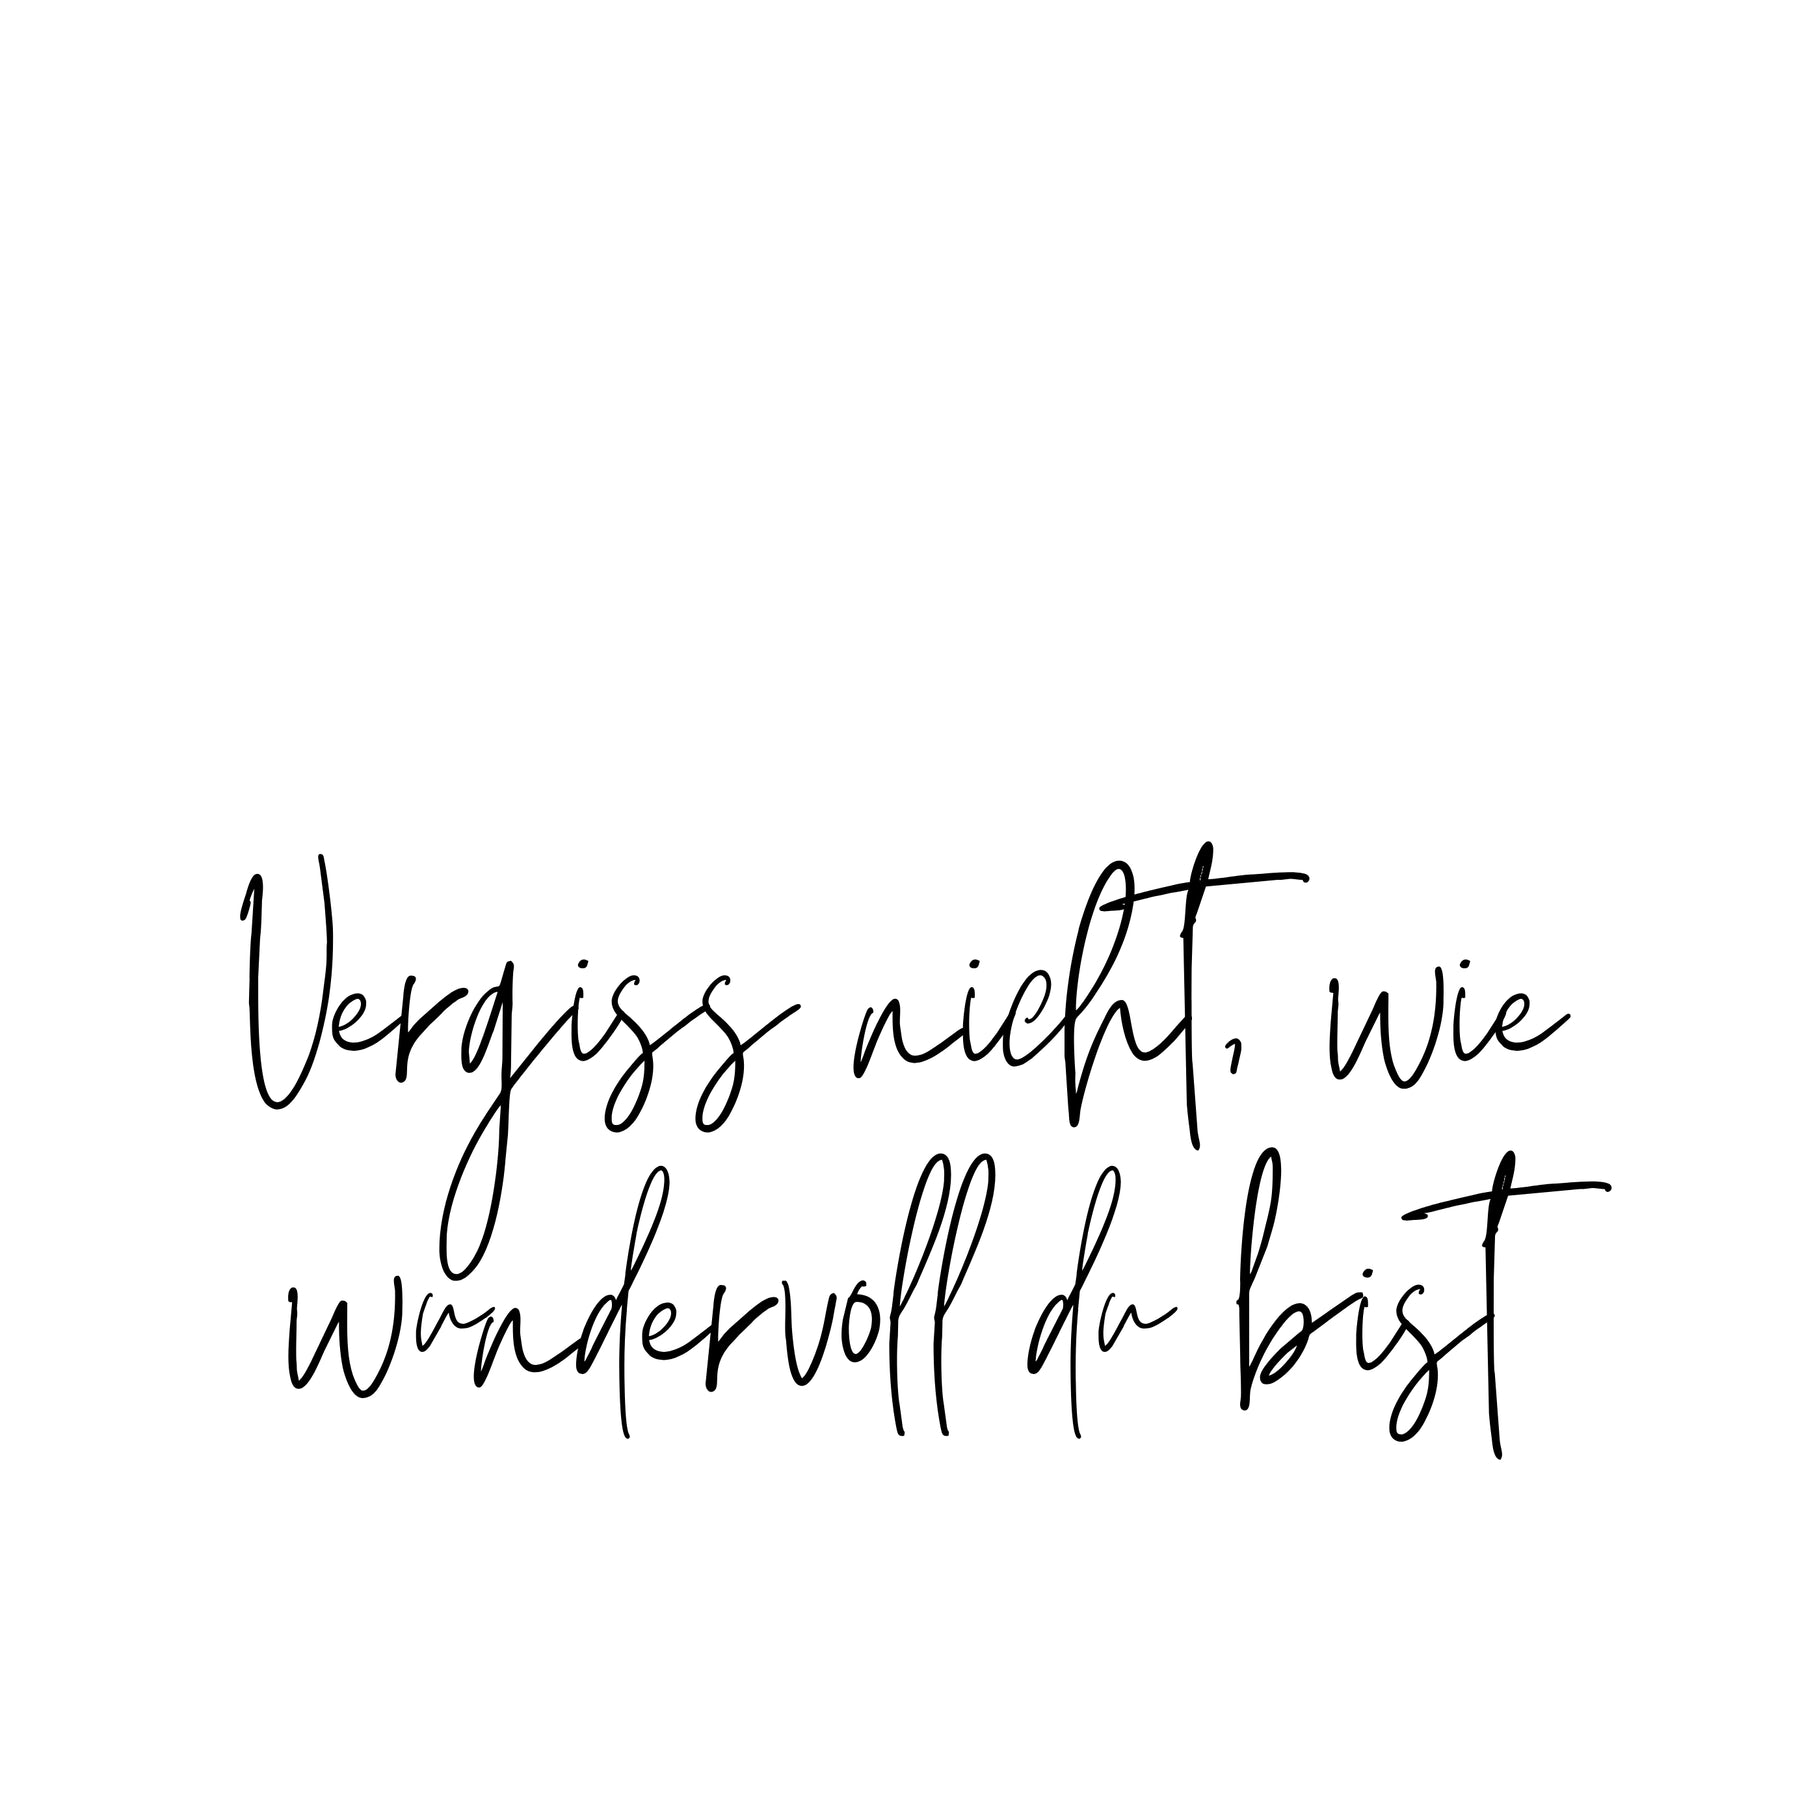 Vergiss nicht, wie
wundervoll du bist